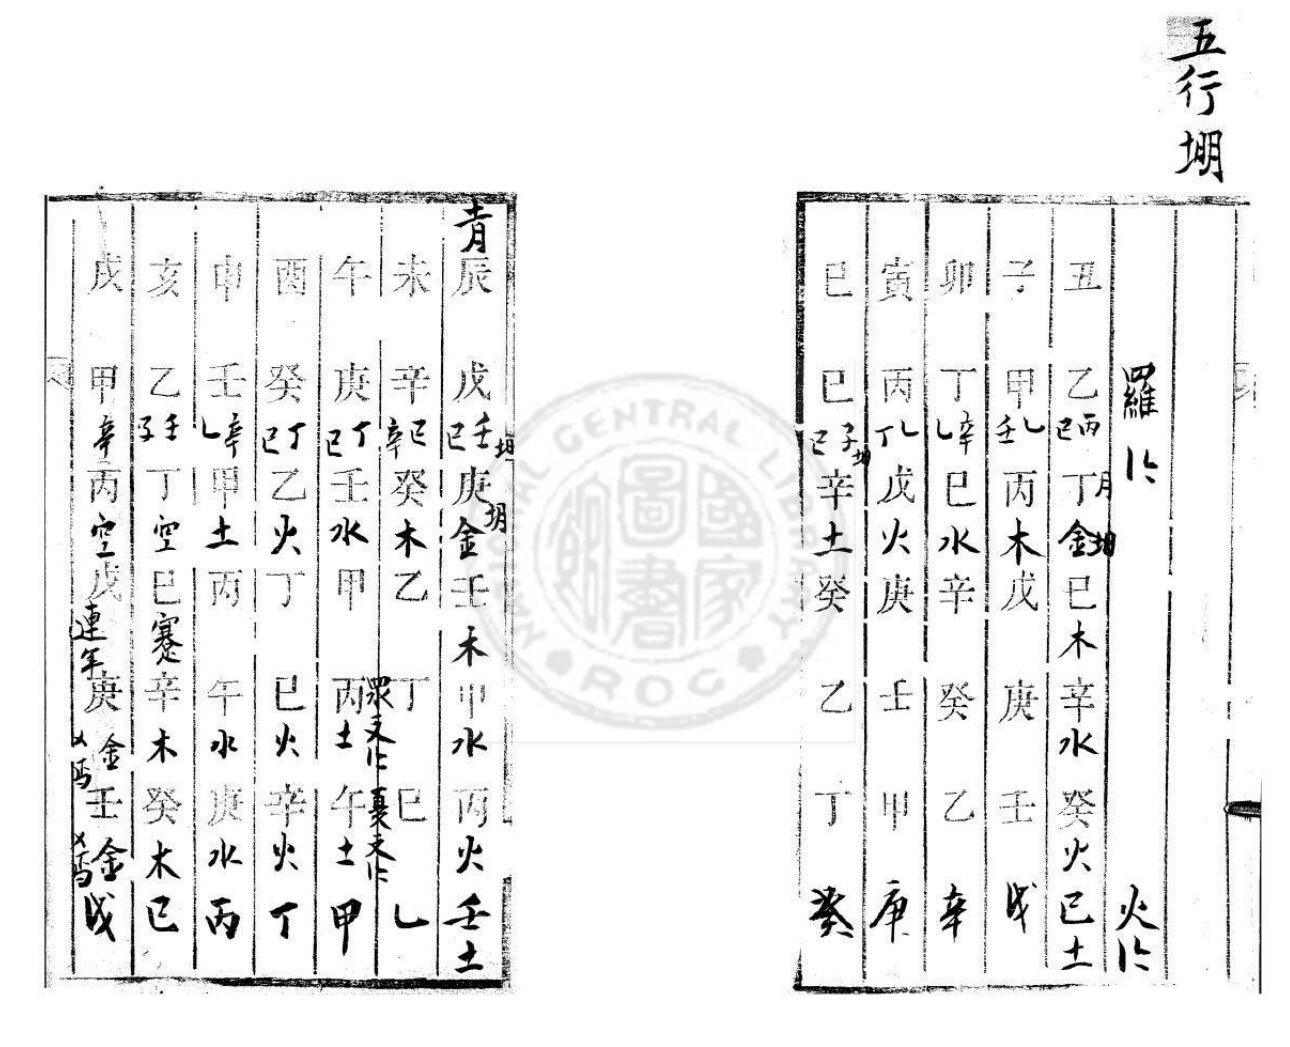 五行堋
羅
火
丑 乙 丙 巳 丁 月 金 巳 木 辛 水 癸 火 巳 土
子 甲 乚 壬 丙 木 戊 庚 壬 戊
卯 丁 辛 乚 巳 水 辛 癸 乙 辛
寅 丙 乚 丁 戊 火 庚 壬 甲 庚
巳 巳 子 巳 辛 土 癸 乙 丁 癸
青
辰 戊 壬 巳 堋 庚 堋 金 壬 木 甲 水 丙 火 壬 土
未 辛 巳 辛 癸 木 乙 丁 巳 乚
午 庚 丁 巳 壬 水 甲 丙 土 午 土 甲
酉 癸 丁 巳 乙 火 丁 巳 火 辛 火 丁
申 壬 辛 乚 甲 土 丙 午 水 庚 水 丙
亥 乙 壬 子 丁 空 巳 蹇 辛 木 癸 木 巳
戌 甲 辛 丙 空 戊 連年 庚 金 壬 金 戊
國家圖書館
NATIONAL CENTRAL LIBRARY
ROC